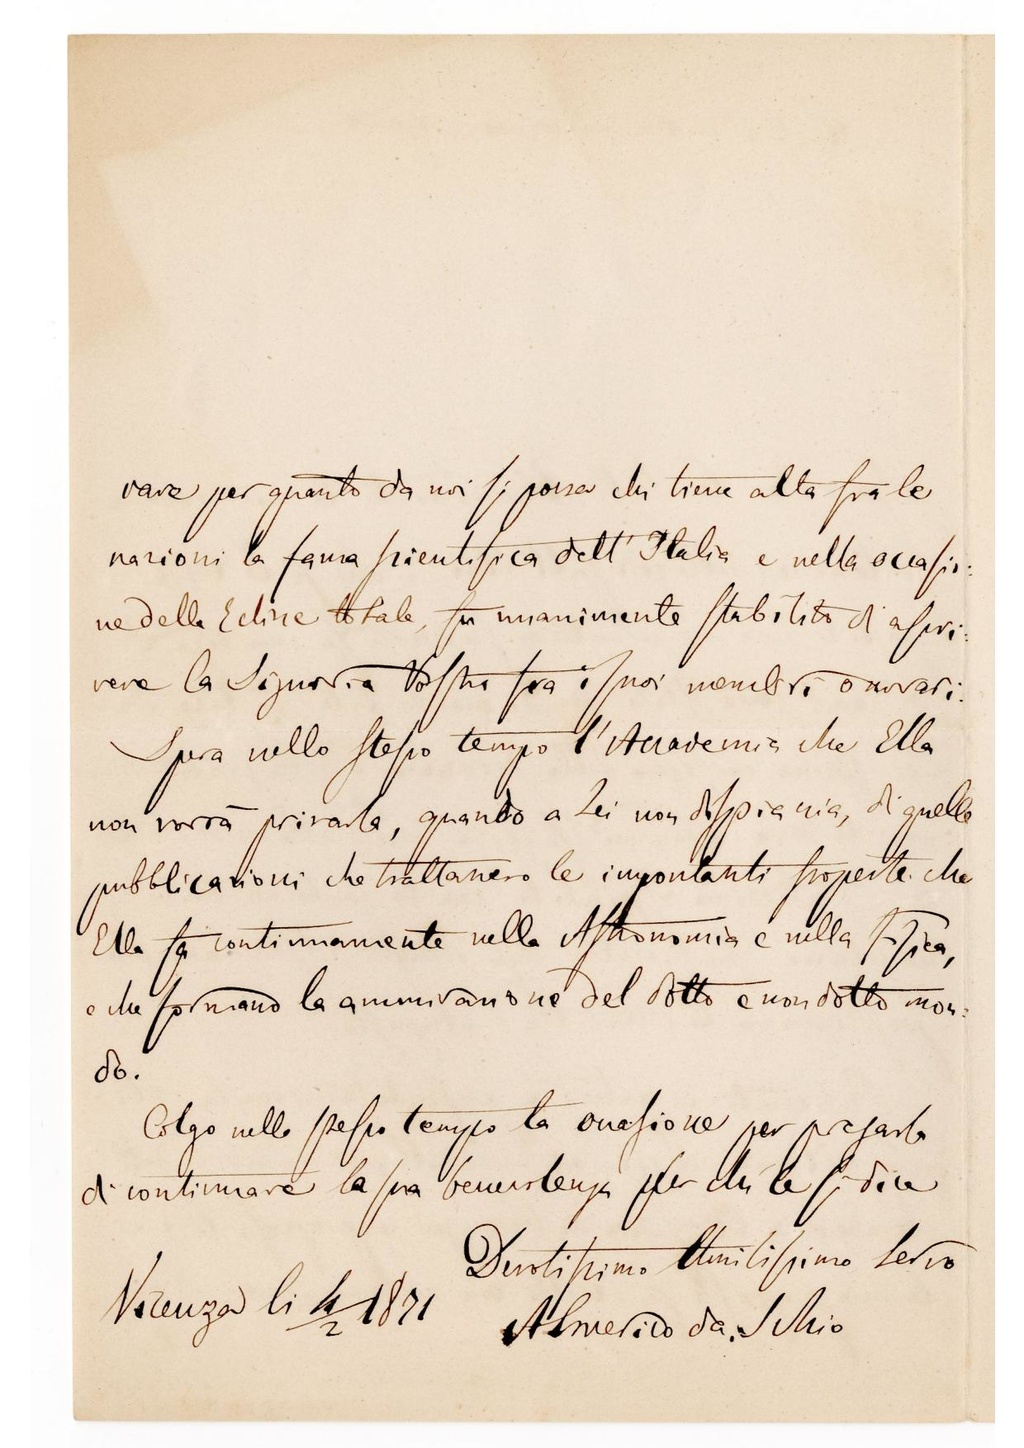 vare per quanto da noi si possa chi tiene alta fra le
nazioni la fama scientifica dell' Italia e nella occasio:
ne della Eclisse totale, fu unanimente stabilito di ascri:
vere la Signoria Vostra fra i suoi membri onorari.
Spera nello stesso tempo l'Accademia che Ella
non vorrà privarla, quando a Lei non dispiaccia, di quelle
pubblicazioni che trattanero le importanti scoperte che
Ella fa continuamente nella Astronomia e nella Fisica,
e che formano la ammirazione del dotto e non dotto mon:
do.
Colgo nello stesso tempo la occasione per pregarla
di continuare la sua benevolenza per chi le si dice
Devotissimo Umilissimo Servo
Vicenza li 4/2 1871
Almerico da Schio